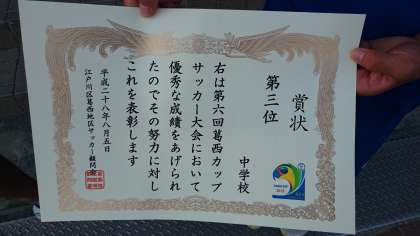 賞状
第三位
中学校
右は第六回葛西カップ
サッカー大会において
優秀な成績をあげられ
たのでその努力に対し
これを表彰します
平成二十八年八月五日
江戸川区葛西地区サッカー顧問会